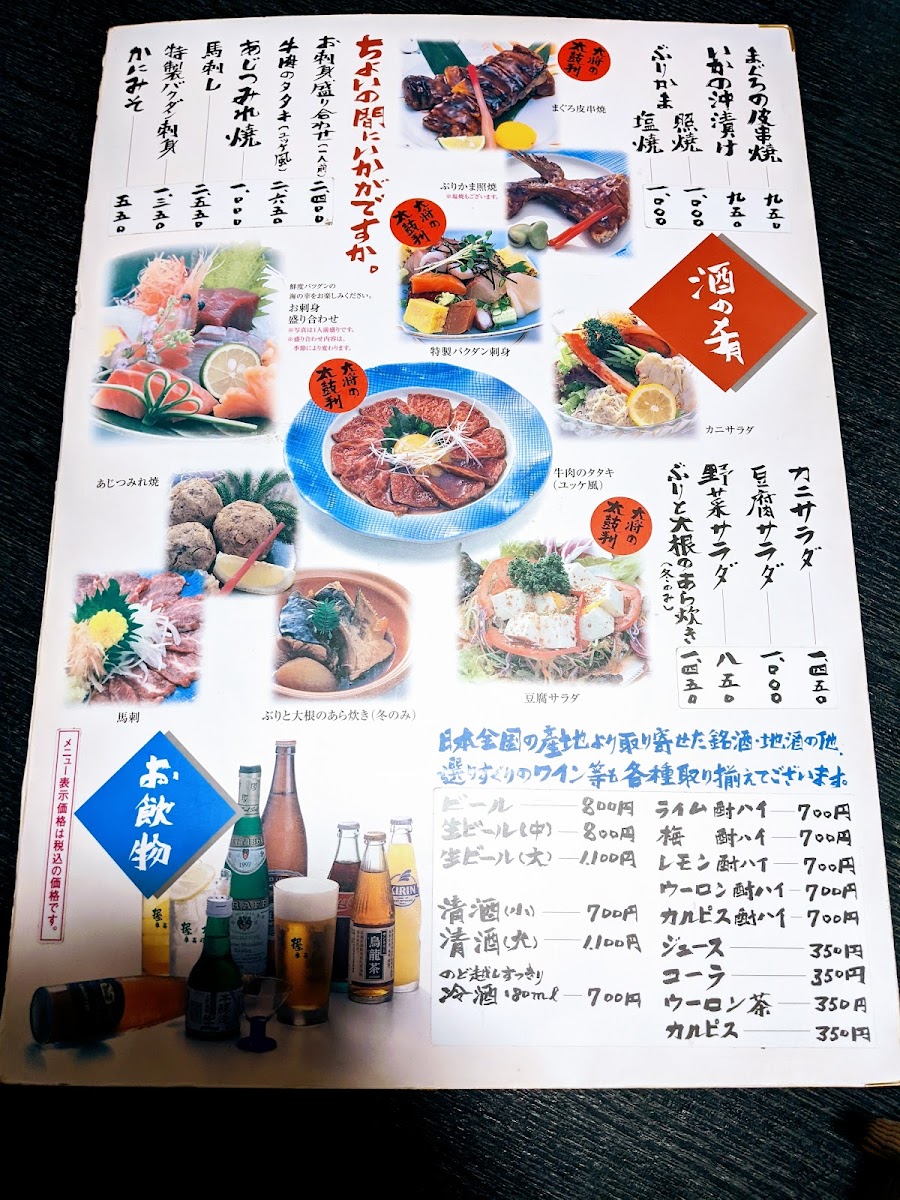 まぐろの皮串焼 九五〇
いかの沖漬け 九五〇
ぶりかま 照焼 一、〇〇〇
塩焼 一、〇〇〇
大将の
太鼓判
まぐろ皮串焼
ぶりかま照焼
※塩焼もございます。
ちょいの間にいかがですか。
お刺身盛り合わせ(二人前) 二、四〇〇
牛肉のタタキ(ユッケ風) 二、六五〇
あじつみれ焼 一、〇〇〇
馬刺し 二、五五〇
特製バクダン刺身 一、三五〇
かにみそ 五五〇
大将の
太鼓判
特製バクダン刺身
鮮度バツグンの
海の幸をお楽しみください。
お刺身
盛り合わせ
※写真は1人前盛りです。
※盛り合わせ内容は、
季節により変わります。
酒の肴
カニサラダ
大将の
太鼓判
牛肉のタタキ
(ユッケ風)
あじつみれ焼
カニサラダ 一、四五〇
豆腐サラダ 一、〇〇〇
野菜サラダ 八五〇
ぶりと大根のあら炊き(冬のみ) 一、四五〇
大将の
太鼓判
豆腐サラダ
馬刺
ぶりと大根のあら炊き(冬のみ)
日本全国の産地より取り寄せた銘酒・地酒の他、
選りすぐりのワイン等も各種取り揃えてございます。
お飲物
メニュー表示価格は税込の価格です。
ビール 800円
生ビール(中) 800円
生ビール(大) 1,100円
清酒(小) 700円
清酒(大) 1,100円
のど越しすっきり
冷酒 180ml 700円
ライム酎ハイ 700円
梅 酎ハイ 700円
レモン酎ハイ 700円
ウーロン酎ハイ 700円
カルピス酎ハイ 700円
ジュース 350円
コーラ 350円
ウーロン茶 350円
カルピス 350円
烏龍茶
KIRIN
1997